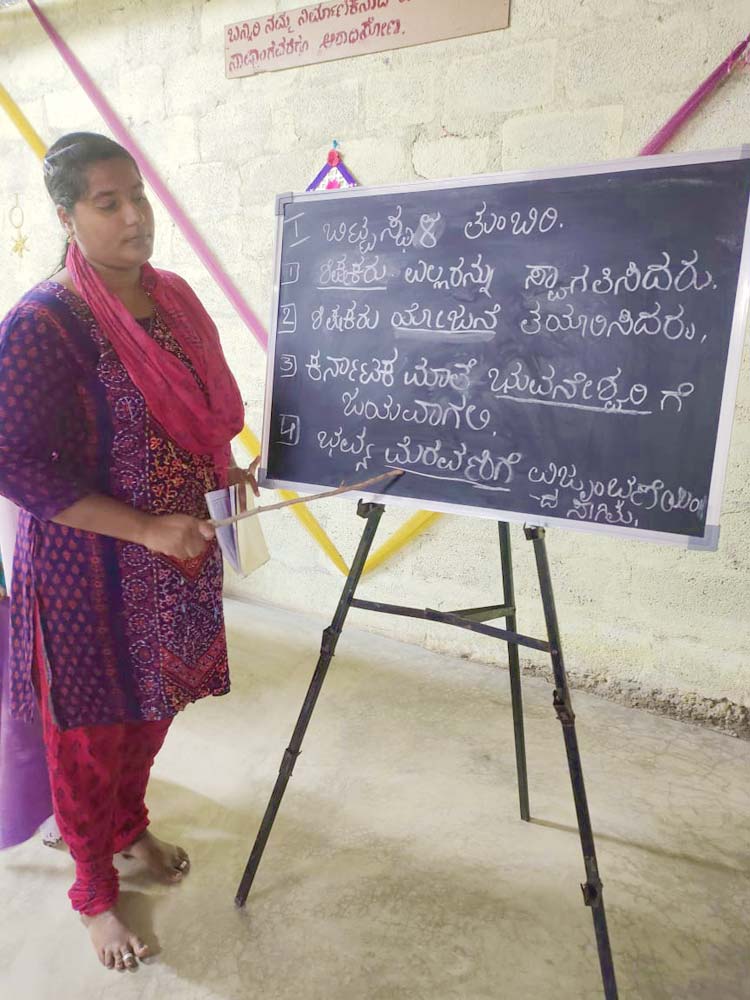 ಬನ್ನಿರಿ ನಮ್ಮ ನಿರ್ಮಾಣಿಕನಾದ
ಸಾಷ್ಟಾಂಗವೆರಗಿ ಆರಾಧಿಸೋಣ.
I ಬಿಟ್ಟ ಸ್ಥಳ ತುಂಬಿರಿ.
1 ಶಿಕ್ಷಕರು ಎಲ್ಲರನ್ನು ಸ್ವಾಗತಿಸಿದರು.
2 ಶಿಕ್ಷಕರು ಯೋಜನೆ ತಯಾರಿಸಿದರು.
3 ಕರ್ನಾಟಕ ಮಾತೆ ಭುವನೇಶ್ವರಿ ಗೆ
ಜಯವಾಗಲಿ.
4 ಭವ್ಯ ಮೆರವಣಿಗೆ ವಿಜೃಂಭಣೆಯಿಂ
ದ ಸಾಗಿತು.